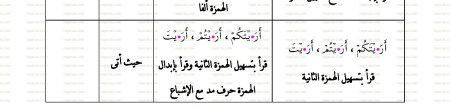 الهمزة ألفا
أَرَ•يْتَكُمْ ، أَرَ•يْتُمْ ، أَرَ•يْتَ
قرأ بتسهيل الهمزة الثانية
أَرَ•يْتَكُمْ ، أَرَ•يْتُمْ ، أَرَ•يْتَ
قرأ بتسهيل الهمزة الثانية وقرأ بإبدال
الهمزة حرف مد مع الإشباع
حيث أتى